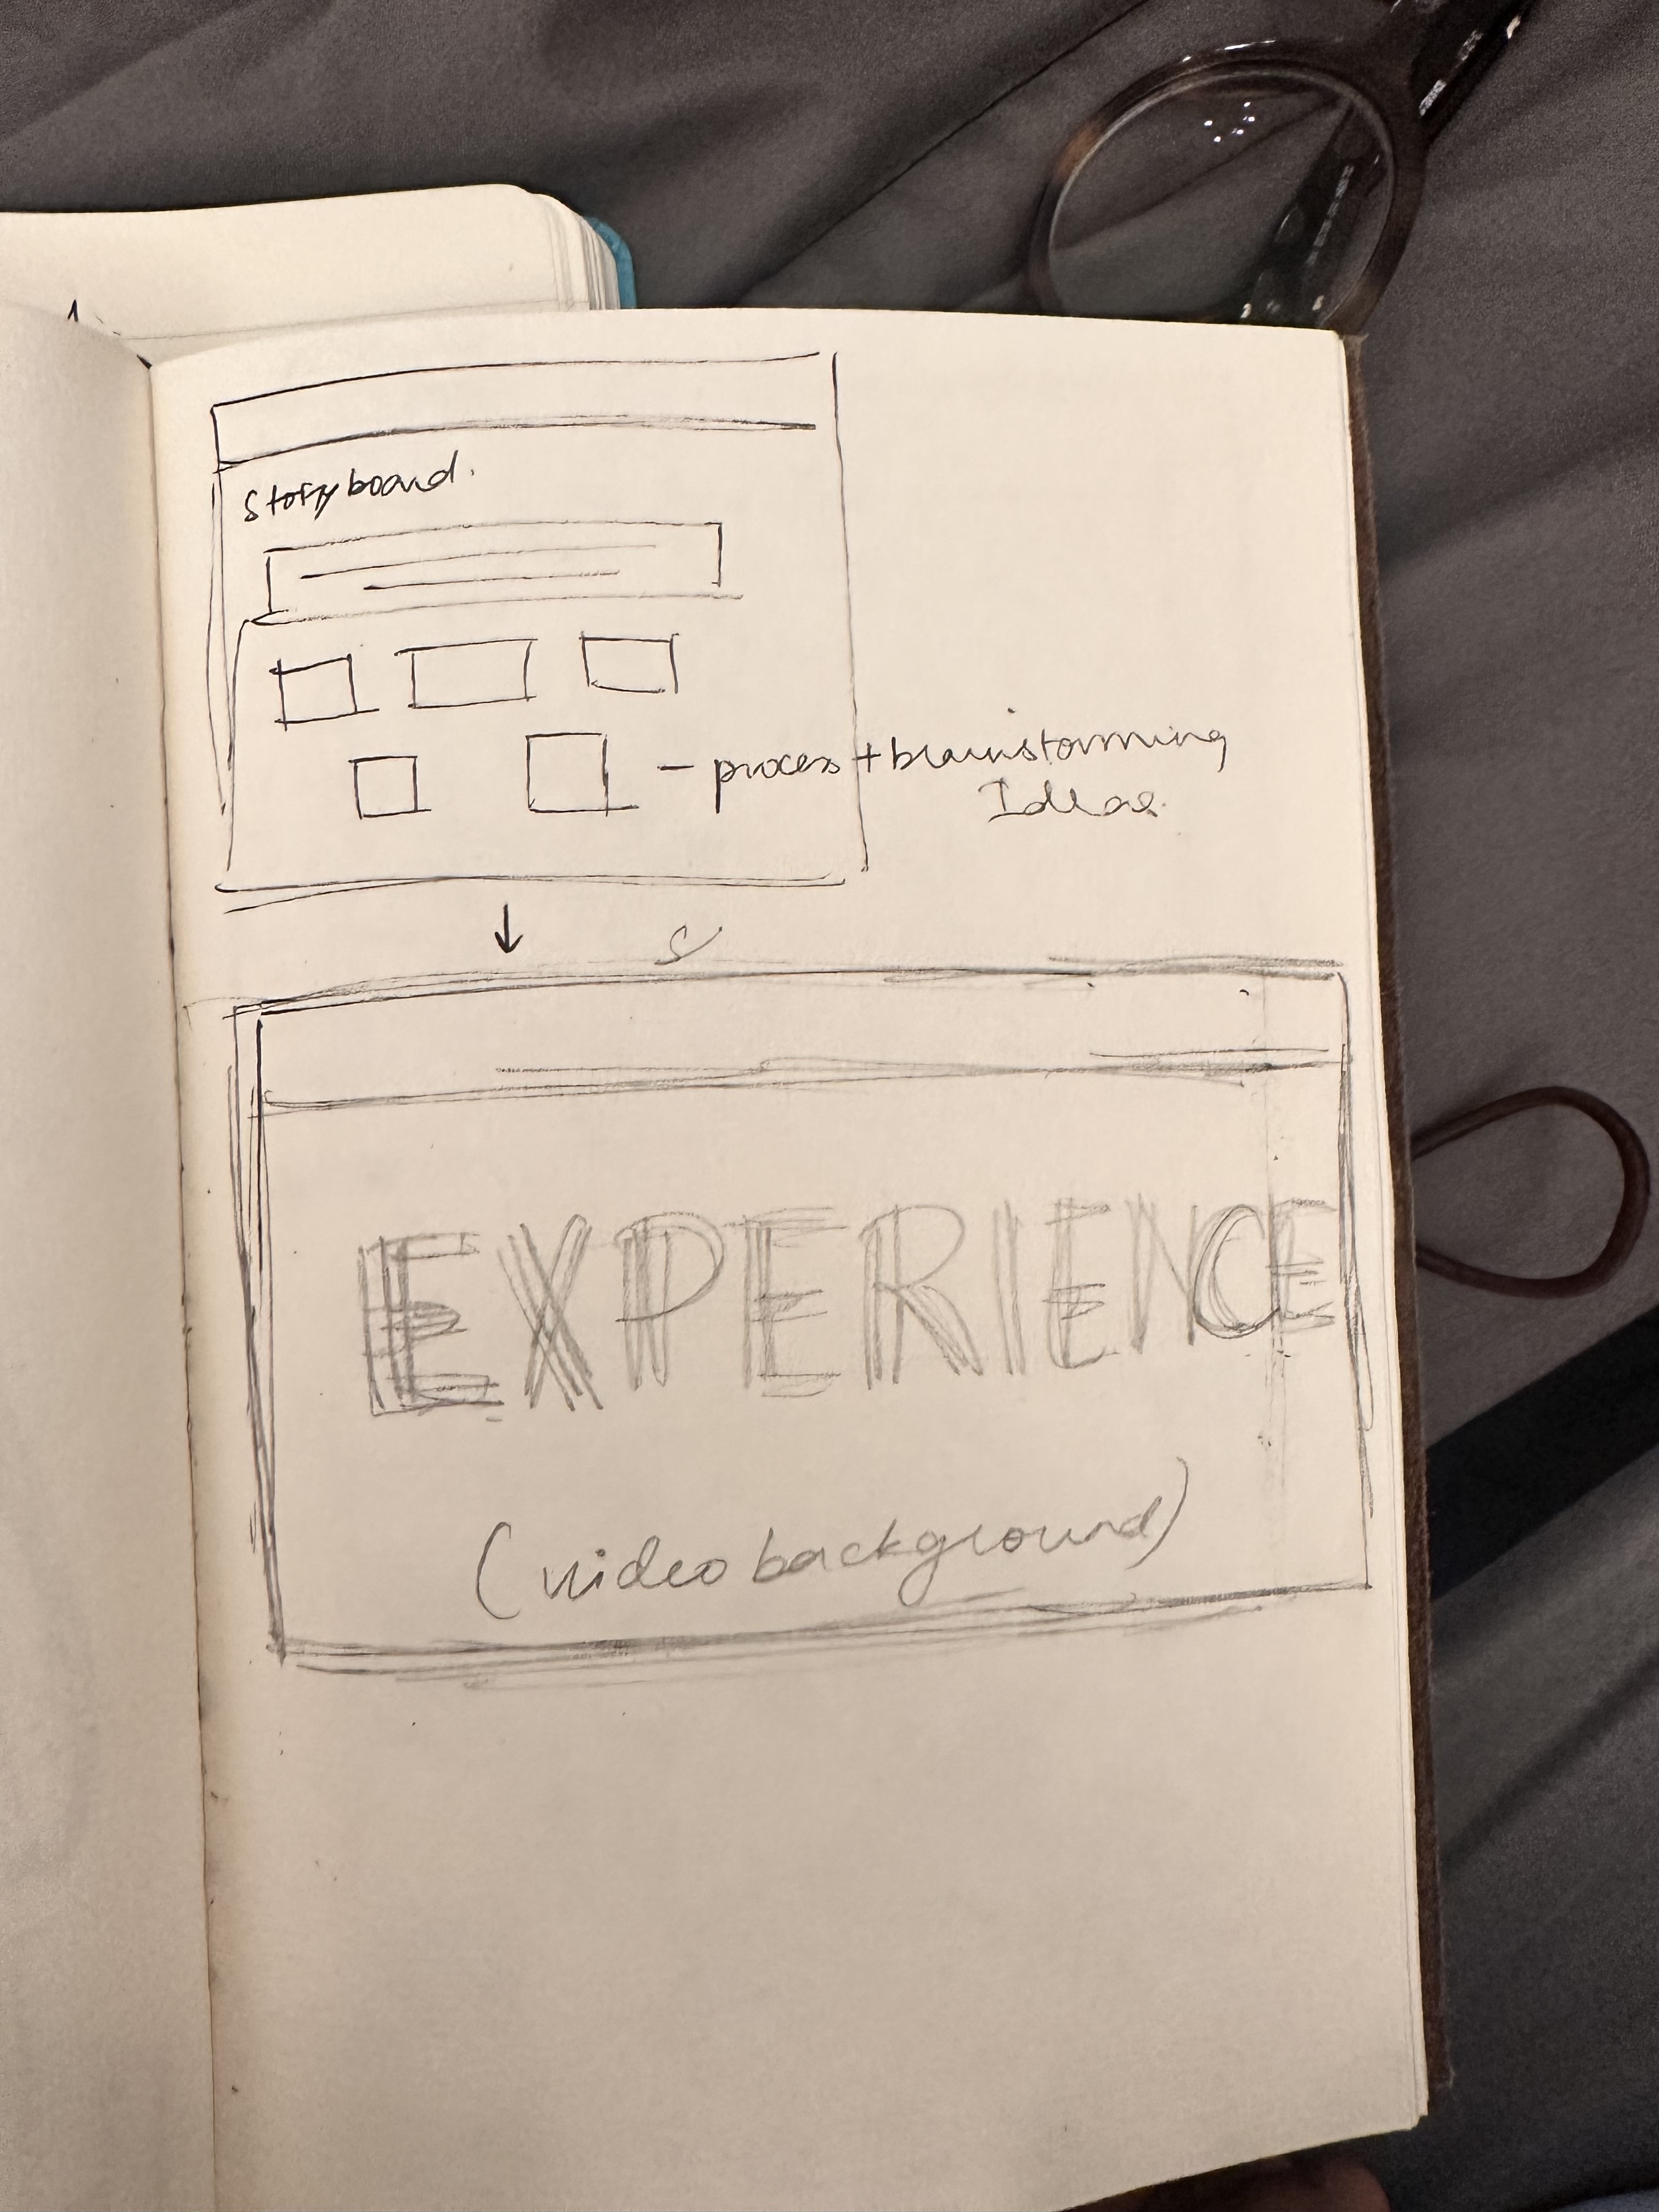 Storyboard.
- process + brainstorming
Ideas.
EXPERIENCE
(video background)